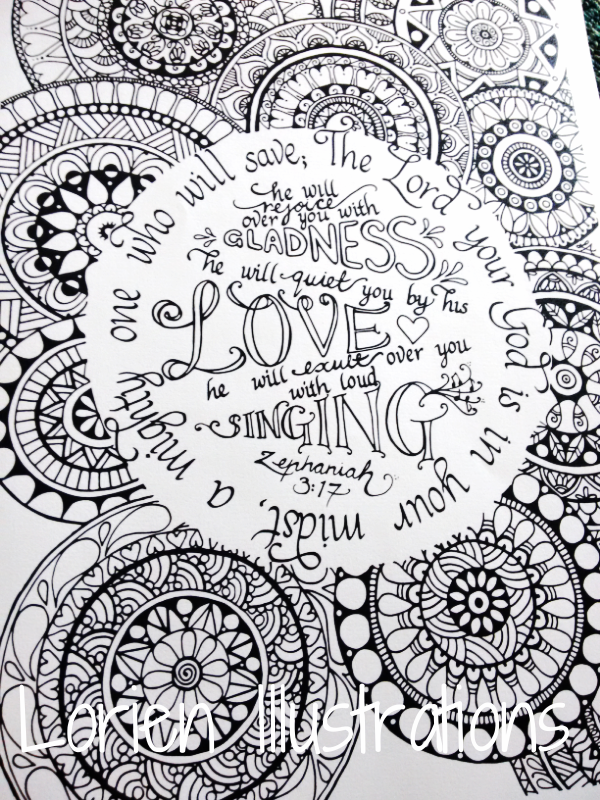 The Lord your God is in your midst, a mighty one who will save;
he will
rejoice
over you with
GLADNESS
he will quiet you by his
LOVE
he will exult over you
with loud
SINGING
Zephaniah
3:17
Lorien Illustrations